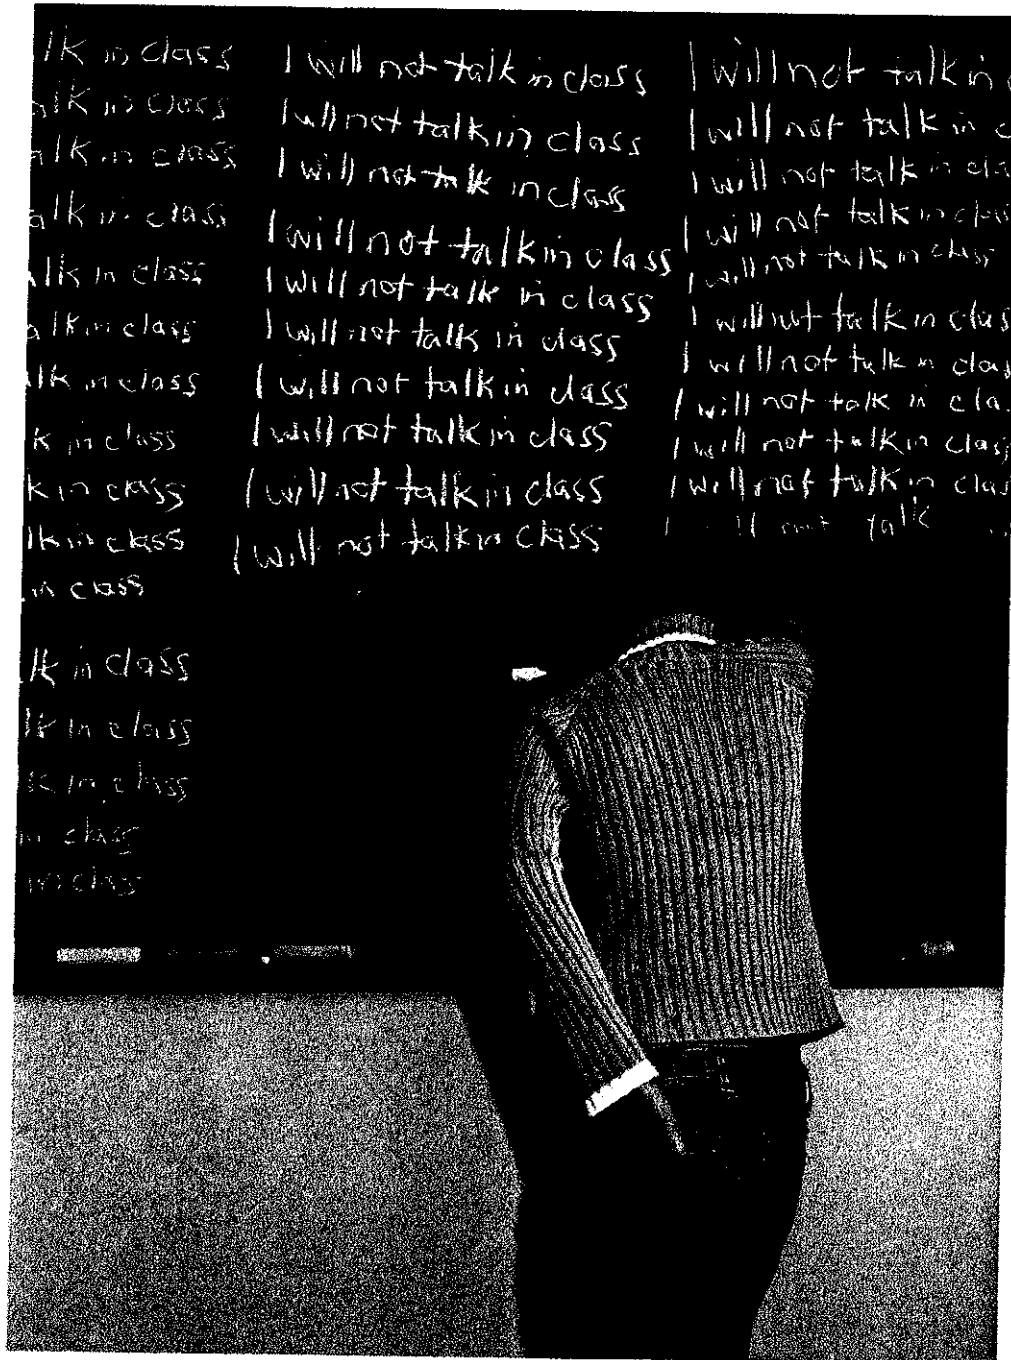 alk in class
alk in class
alk in class
alk in class
alk in class
alk in class
alk in class
k in class
k in class
lk in class
in class
lk in class
lk in class
lk in class
in class
in class
I will not talk in class
I will not talk in class
I will not talk in class
I will not talk in class
I will not talk in class
I will not talk in class
I will not talk in class
I will not talk in class
I will not talk in class
I will not talk in class
I will not talk in
I will not talk in c
I will not talk in clas
I will not talk in class
I will not talk in class
I will not talk in clas
I will not talk in class
I will not talk in cla
I will not talk in class
I will not talk in class
not talk